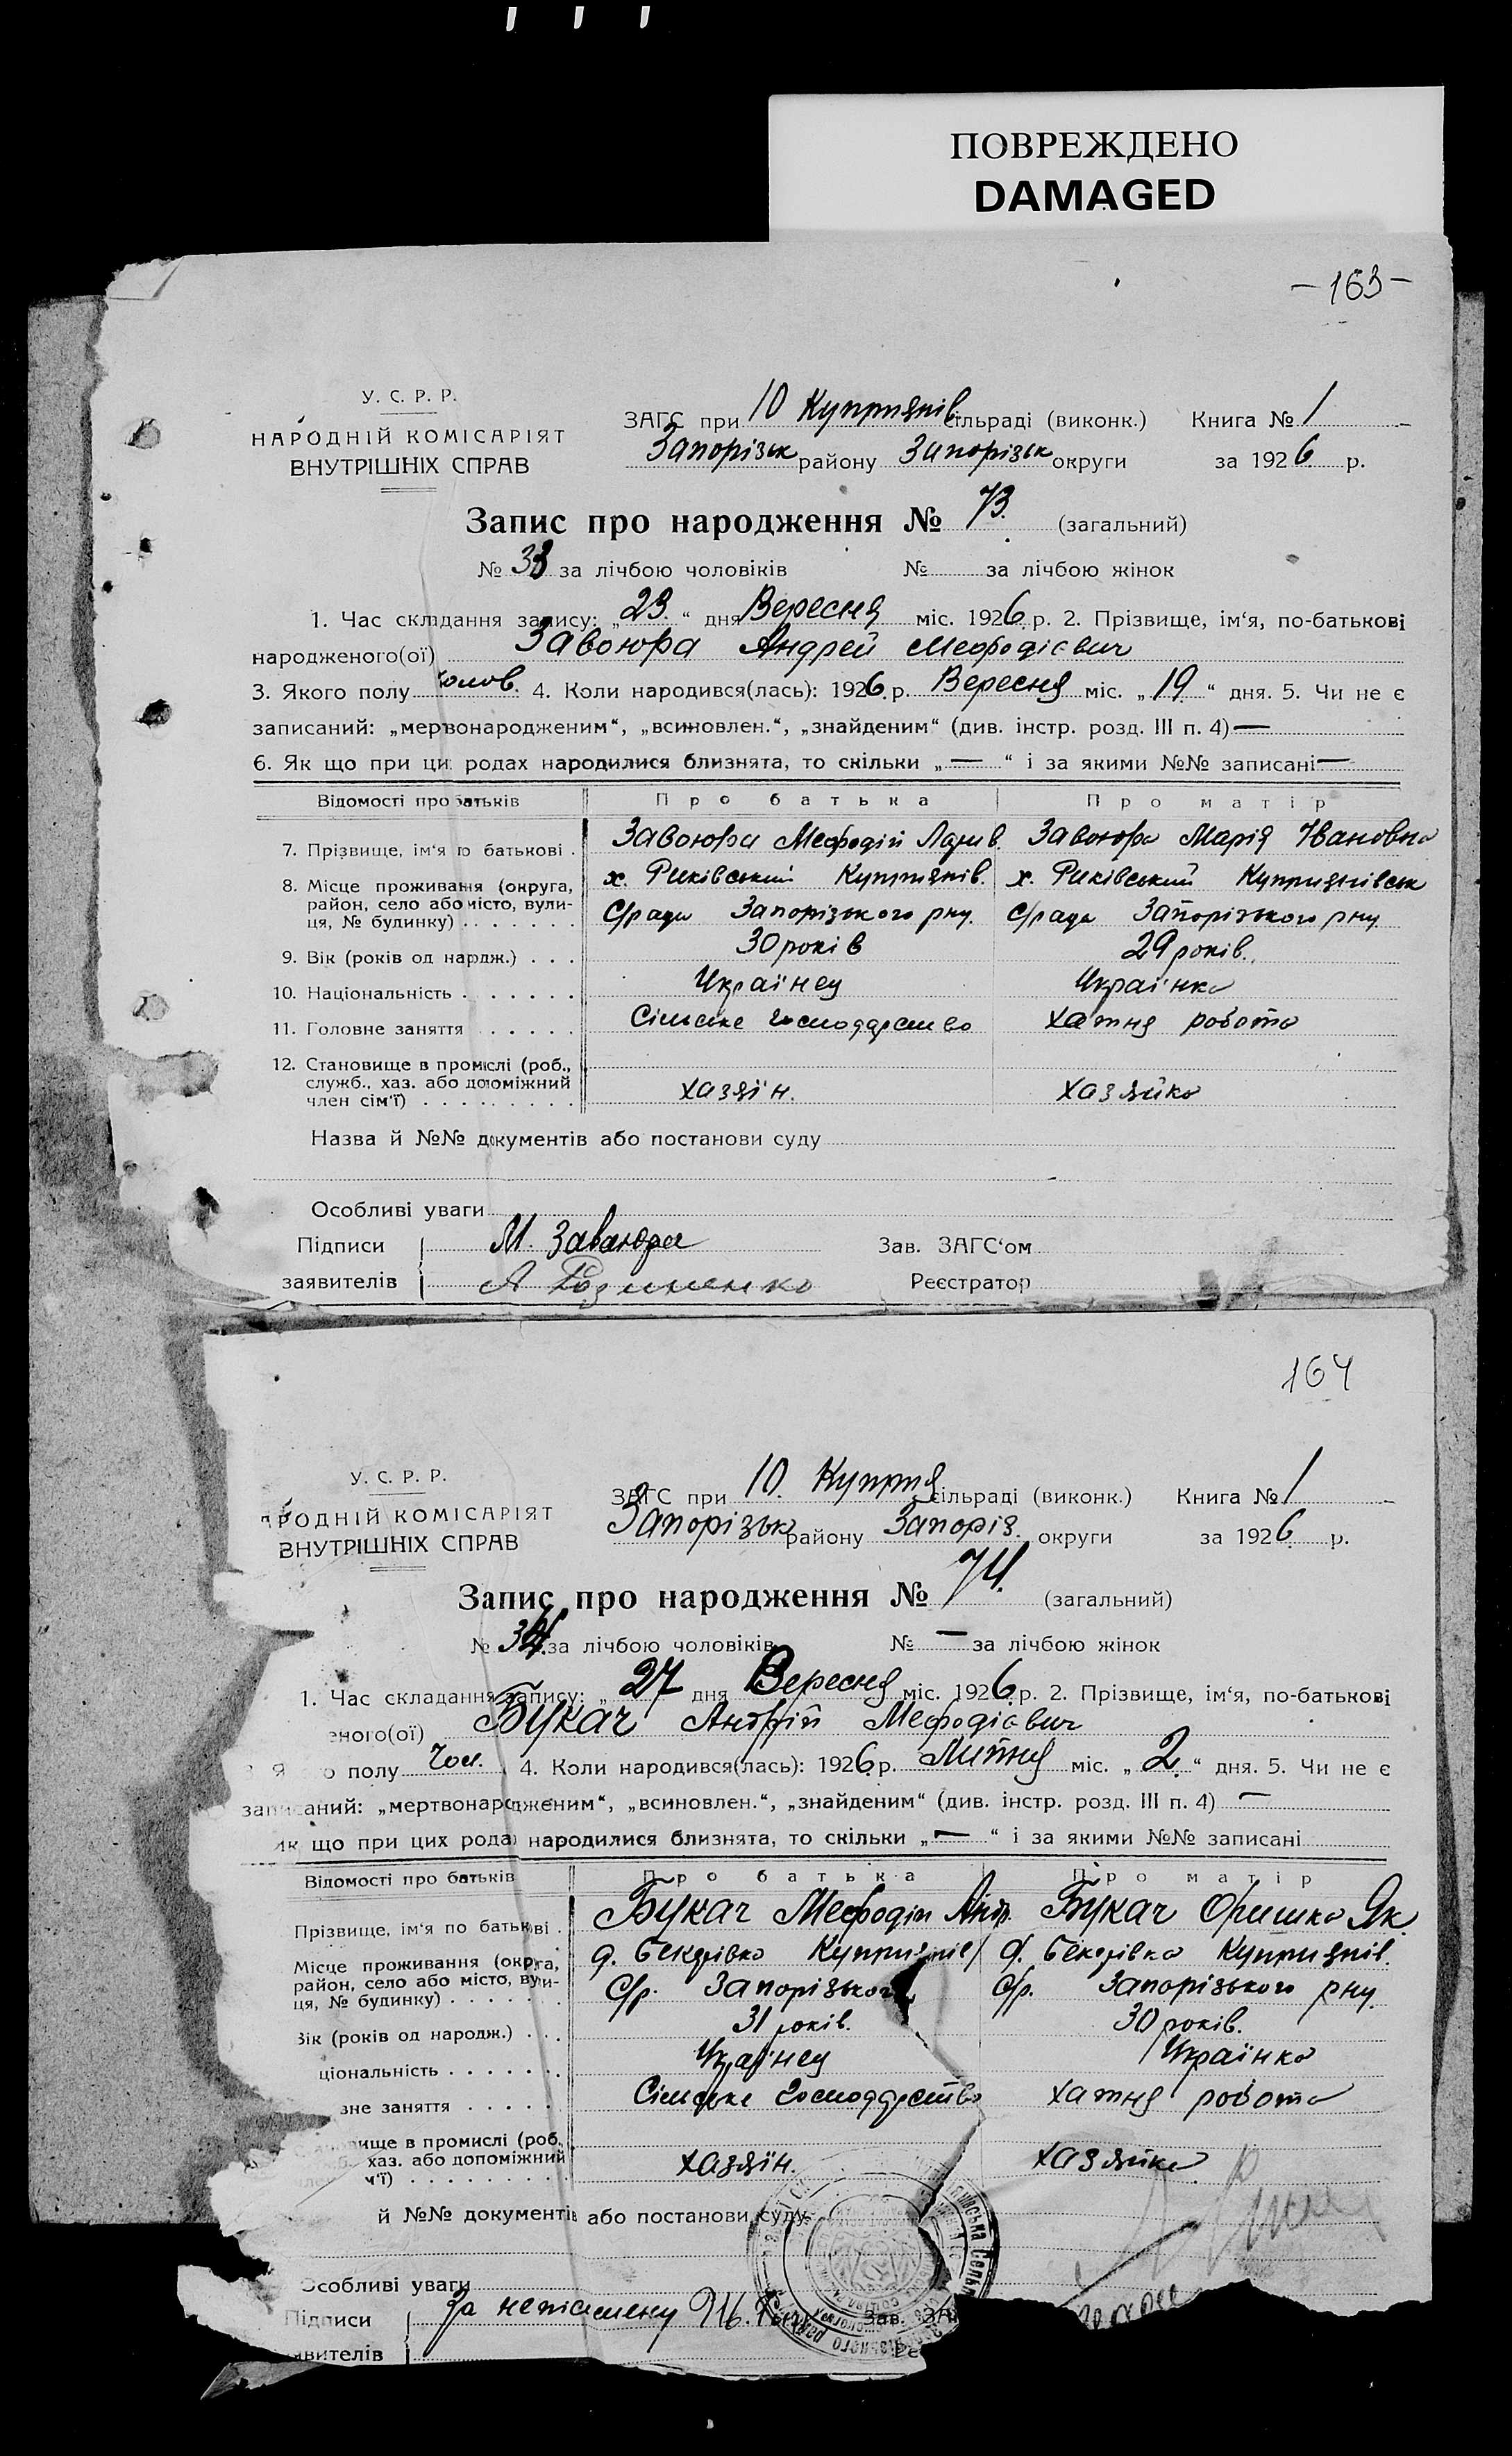 ПОВРЕЖДЕНО
DAMAGED
—163—
У. С. Р. Р.
НАРОДНІЙ КОМІСАРІЯТ
ВНУТРІШНІХ СПРАВ
ЗАГС при 10 Куприянів сільраді (виконк.) Книга № 1
Запорізьк району Запорізьк округи за 1926 р.
Запис про народження № 73. (загальний)
№ 33 за лічбою чоловіків № за лічбою жінок
1. Час складання запису: „23.“ дня Вересня міс. 1926 р. 2. Прізвище, ім‘я, по-батькові
народженого(ої) Завоюра Андрей Мефодієвич
3. Якого полу чолов. 4. Коли народився(лась): 1926 р. Вересня міс. „19“ дня. 5. Чи не є
записаний: „мервонародженим“, „всиновлен.“, „знайденим“ (див. інстр. розд. III п. 4) —
6. Як що при ци родах народилися близнята, то скільки „—“ і за якими №№ записані —
Відомості про батьків Про батька Про матір
7. Прізвище, ім‘я по батькові . Завоюра Мефодій Завоюра Марія Ивановна
8. Місце проживання (округа, х. Риківський Куприянів. х. Риківський Куприянівськ
район, село або місто, вули-
ця, № будинку) . . . . . . . С/ради Запорізького рну. С/рада Запорізького рну.
9. Вік (років од нардж.) . . . 30 років 29 років.
10. Національність . . . . . . . Украінец Украінка
11. Головне заняття . . . . . . Сільське господарство хатня робота
12. Становище в промислі (роб.,
служб., хаз. або допоміжний
член сім‘ї) . . . . . . . . . . хазяїн. хазяйка
Назва й №№ документів або постанови суду
Особливі уваги
Підписи М. Заваюра Зав. ЗАГС‘ом
заявителів А Реєстратор
164
У. С. Р. Р.
РОДНІЙ КОМІСАРІЯТ
ВНУТРІШНІХ СПРАВ
ЗАГС при 10. Куприя сільраді (виконк.) Книга № 1
Запорізьк району Запоріз. округи за 1926 р.
Запис про народження № 74. (загальний)
№ 34. за лічбою чоловіків № — за лічбою жінок
1. Час складання запису: „27 дня Вересня міс. 1926 р. 2. Прізвище, ім‘я, по-батькові
еного(ої) Букач Андрій Мефодієвич
полу чол. 4. Коли народився(лась): 1926 р. Липня міс. „2.“ дня. 5. Чи не є
записаний: „мертвонародженим“, „всиновлен.“, „знайденим“ (див. інстр. розд. III п. 4) —
як що при цих родах народилися близнята, то скільки „—“ і за якими №№ записані
Відомості про батьків Про батька Про матір
Прізвище, ім‘я по батькові . Букач Мефодій Букач Оришка Як.
Місце проживання (округа, Куприянів Куприянів.
район, село або місто, вули-
ця, № будинку) . . . . . . С/р. Запорізького С/р. Запорізького рну.
Вік (років од народж.) . . . 31 років. 30 років.
ціональність . . . . . . . Украінец Украінка
вне заняття . . . . . Сільське господарство хатня робота
вище в промислі (роб.,
хаз. або допоміжний
м‘ї) . . . . . . . . . хазяїн. хазяйка
й №№ документів або постанови суду
Особливі уваги
Підписи За неписмену Зав. ЗА
явителів Ре